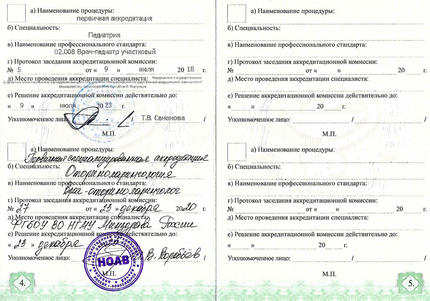 а) Наименование процедуры:
первичная аккредитация
б) Специальность:
Педиатрия
в) Наименование профессионального стандарта:
02.008 Врач-педиатр участковый
г) Протокол заседания аккредитационной комиссии:
№ 5 от « 9 » июля 20 18 г.
д) Место проведения аккредитации специалиста:
е) Решение аккредитационной комиссии действительно до:
« 9 » июля 20 23 г.
Уполномоченное лицо Т.В. Семенова
М.П.
Первичная специализированная аккредитация
б) Специальность:
Оториноларингология
в) Наименование профессионального стандарта:
врач-оториноларинголог
г) Протокол заседания аккредитационной комиссии:
№ 27 от « 23 » декабря 2020 г.
д) Место проведения аккредитации специалиста:
ФГБОУ ВО НГМУ Минздрава России
е) Решение аккредитационной комиссии действительно до:
« 23 » декабря
Уполномоченное
М.П.
НОАВ
4.
а) Наименование процедуры:
б) Специальность:
в) Наименование профессионального стандарта:
г) Протокол заседания аккредитационной комиссии:
№ от « » 20 г.
д) Место проведения аккредитации специалиста:
е) Решение аккредитационной комиссии действительно до:
« » 20 г.
Уполномоченное лицо: / /
М.П.
а) Наименование процедуры:
б) Специальность:
в) Наименование профессионального стандарта:
г) Протокол заседания аккредитационной комиссии:
№ от « » 20 г.
д) Место проведения аккредитации специалиста:
е) Решение аккредитационной комиссии действительно до:
« » 20 г.
Уполномоченное лицо: / /
М.П.
5.